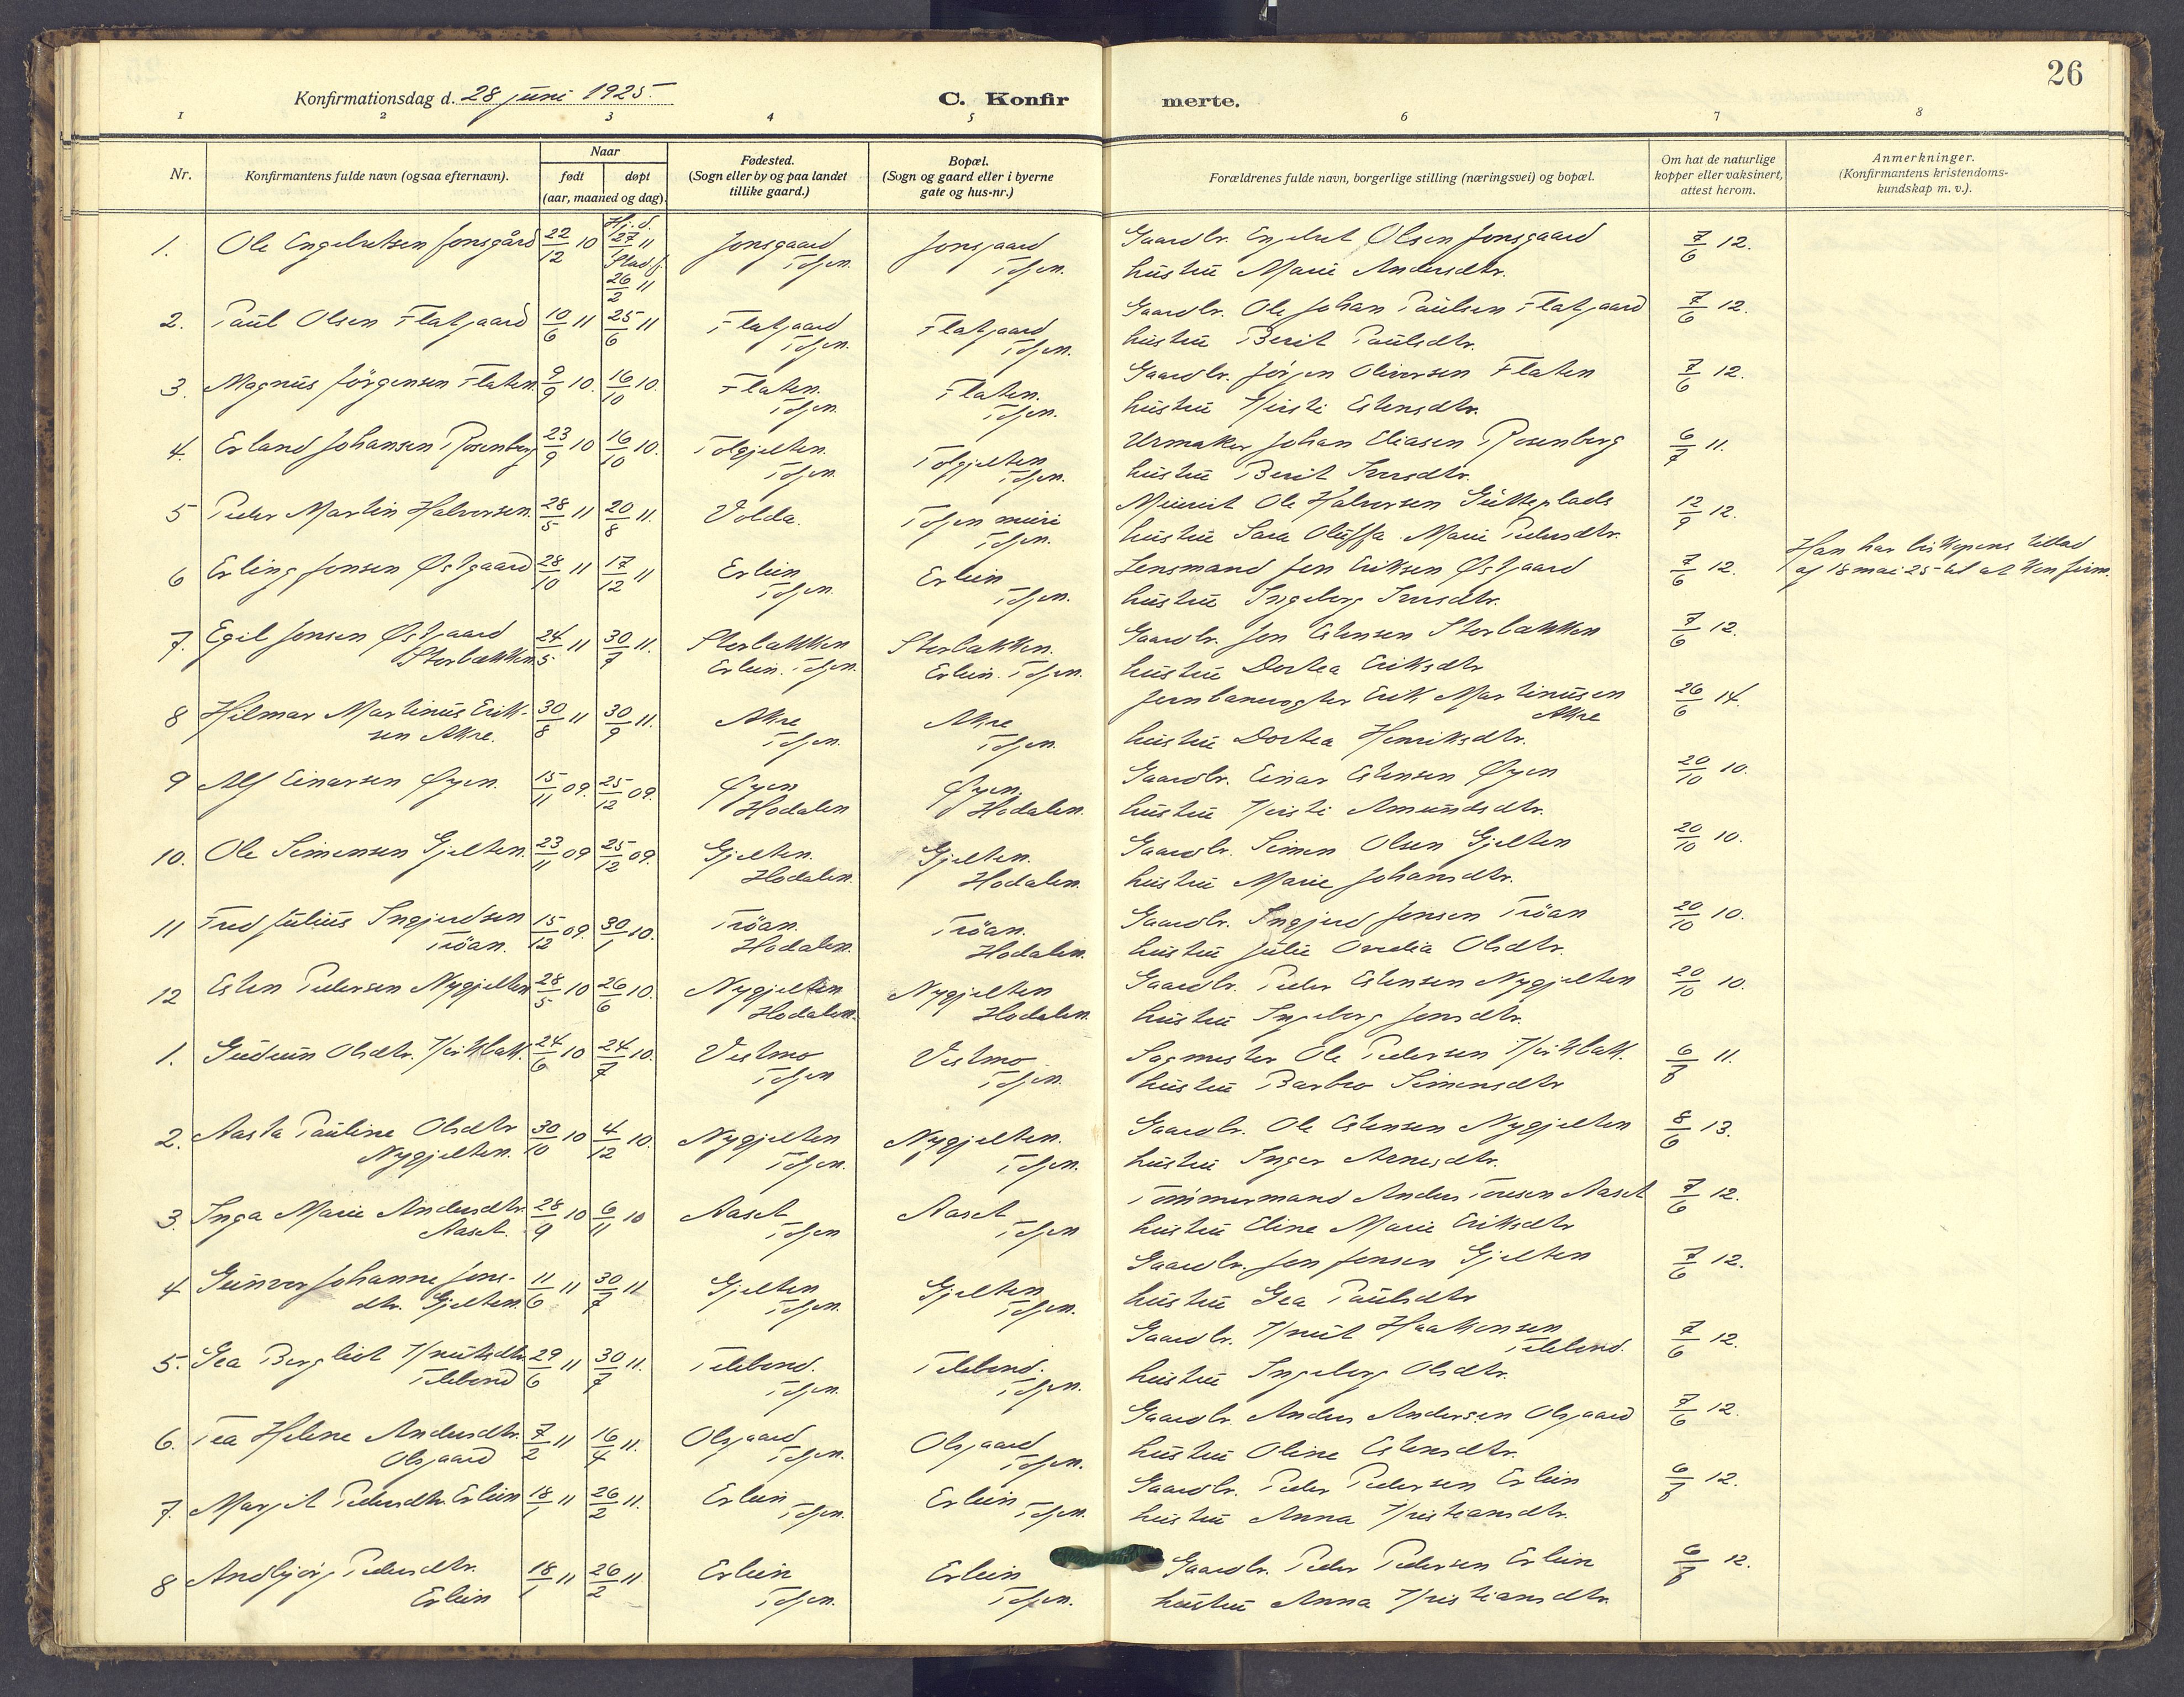 26
Konfirmationsdag d. 28 juni 1925.
C. Konfirmerte.
1 2 3 4 5 6 7 8
Nr.
Konfirmantens fulde navn (ogsaa efternavn).
Naar
født
døpt
(aar, maaned og dag).
Fødested.
(Sogn eller by og paa landet
tillike gaard.)
Bopæl.
(Sogn og gaard eller i byerne
gate og hus-nr.)
Forældrenes fulde navn, borgerlige stilling (næringsvei) og bopæl.
Om hat de naturlige
kopper eller vaksinert,
attest herom.
Anmerkninger.
(Konfirmantens kristendoms-
kundskap m. v.).
1. Ole Engebretsen Jonsgård 22/12 10 Hj. d. 27 11 Stadf. 26/2 11 Jonsgaard Tolgen. Jonsgaard Tolgen. Gaardbr. Engebret Olsen Jonsgaard 7/6 12.
hustru Marie Andersdtr.
2. Paul Olsen Flatgaard 10/6 11 25/6 11 Flatgaard Tolgen. Flatgaard Tolgen. Gaardbr. Ole Johan Paulsen Flatgaard 7/6 12.
hustru Berit Paulsdtr.
3. Magnus Jörgensen Flaten 9/9 10. 16/10 10. Flaten. Tolgen. Flaten. Tolgen. Gaardbr. Jörgen Oliversen Flaten 7/6 12.
hustru Kirsti Estensdtr.
4. Erland Johansen Rosenberg 23/9 10 16/10 10. Tolgjelten. Tolgen. Tolgjelten Tolgen. Urmaker Johan Eliasen Rosenberg 6/7 11.
hustru Berit Iversdtr.
5 Peder Martin Halvorsen. 28/5 11 20/8 11. Volda. Tolgen meieri Tolgen. Meierist Ole Halvorsen 12/9 12.
hustru Sara Oluffa Marie Pedersdtr.
6 Erling Jonsen Østgaard 28/10 11 17/12 11 Erlien Tolgen. Erlien Tolgen. Lensmand Jon Eriksen Østgaard 7/6 12. Han har biskopens tillad
hustru Ingeborg Iversdtr. af 18 mai 25 til at konfirm.
7. Egil Jonsen Østgaard 24/5 11 30/7 11. Storbækken Storbækken. Gaardbr. Jon Estensen Storbækken 7/6 12.
Storbækken Erlien. Tolgen. Erlien. Tolgen. hustru Dortea Eriksdtr
8 Hilmar Martinus Erik- 30/8 11 30/9 11. Akre Tolgen. Akre Tolgen. Jernbanevogter Erik Martinusen Akre 26/6 14.
sen Akre. hustru Dortea Henriksdtr.
9 Alf Einarsen Øyen. 15/11 09. 25/12 09. Øyen Hodalen Øyen. Hodalen. Gaardbr. Einar Estensen Øyen 20/10 10.
hustru Kirsti Amundsdtr.
10. Ole Simensen Gjelten. 23/11 09 25/12 09. Gjelten. Hodalen. Gjelten. Hodalen. Gaardbr. Simen Olsen Gjelten 20/10 10.
hustru Marie Johansdtr.
11 Fred Julius Ingjerdsen 15/12 09. 30/1 10. Tröan. Hodalen. Tröan. Hodalen. Gaardbr. Ingjerd Jonsen Tröan 20/10 10.
Tröan. hustru Julie Ovedia Olsdtr.
12 Esten Pedersen Nygjelten 28/5 10 26/6 10. Nygjelten Hodalen. Nygjelten Hodalen. Gaardbr. Peder Estensen Nygjelten 20/10 10.
hustru Ingeborg Jonsdtr.
1. Gudrun Olsdtr. Kirkbak. 24/6 10 24/7 10. Vestmo Tolgen Vestmo Tolgen. Sagmester Ole Pedersen Kirkbak. 6/8 11.
hustru Barbro Simensdtr
2. Aasta Pauline Olsdtr 30/10 10 4/12 10. Nygjelten Tolgen. Nygjelten. Tolgen. Gaardbr. Ole Estensen Nygjelten 8/6 13.
Nygjelten. hustru Inger Arnesdtr.
3. Inga Marie Andersdtr. 28/9 10 6/11 10 Aaset Tolgen Aaset Tolgen Tömmermand Anders Toresen Aaset 7/6 12.
Aaset. hustru Eline Marie Eriksdtr
4 Gunvor Johanne Jons- 11/6 11 30/7 11 Gjelten Tolgen. Gjelten Tolgen. Gaardbr. Jon Jonsen Gjelten 7/6 12.
dtr. Gjelten. hustru Gea Paulsdtr
5. Gea Bergliot Knutsdtr. 29/6 11 30/7 11. Telebond. Tolgen. Telebond. Tolgen. Gaardbr. Knut Haakonsen Telebond. 7/6 12.
Telebond hustru Ingeborg Olsdtr.
6. Tea Helene Andersdtr. 7/2 11 16/4 11. Olsgaard Tolgen. Olsgaard Tolgen. Gaardbr. Anders Andersen Olsgaard 7/6 12.
Olsgaard hustru Oline Estensdtr.
7. Margit Pedersdtr. Erlien 18/1 11 26/2 11. Erlien Tolgen. Erlien Tolgen. Gaardbr. Peder Pedersen Erlien 6/8 12.
hustru Anna Kristiansdtr.
8 Andbjörg Pedersdtr. 18/1 11 26/2 11 Erlien Tolgen. Erlien Tolgen. Gaardbr. Peder Pedersen Erlien 6/8 12.
Erlien hustru Anna Kristiansdtr.